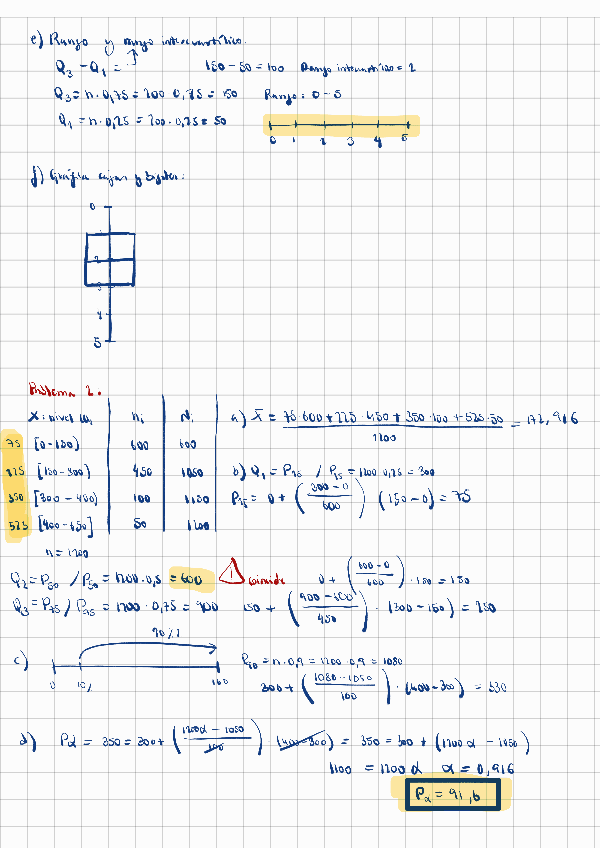 e) Rango y rango intercuartílico.
Q₃ - Q₁ = 150 - 50 = 100 Rango intercuartílico = 2
Q₃ = n · 0,75 = 200 · 0,75 = 150 Rango: 0 - 5
Q₁ = n · 0,25 = 200 · 0,25 = 50
0 1 2 3 4 5
f) Gráfica cajas y bigotes:
0
1
2
3
4
5
Problema 2.
X: nivel ni Ni a) x̄ = (75·600 + 225·450 + 350·100 + 525·50) / 1200 = 172,916
75 [0-150) 600 600
225 [150-300) 450 1050 b) Q₁ = P₂₅ / P₂₅ = 1200·0,25 = 300
350 [300-400) 100 1150 P₂₅ = 0 + ((300-0)/600) (150-0) = 75
525 [400-650] 50 1200
n = 1200
Q₂ = P₅₀ / P₅₀ = 1200·0,5 = 600 ! Coincide 0 + ((600-0)/600) · 150 = 150
Q₃ = P₇₅ / P₇₅ = 1200·0,75 = 900 150 + ((900-600)/450) · (300-150) = 250
90%
c) 0 10% P₉₀ = n·0,9 = 1200·0,9 = 1080
300 + ((1080-1050)/100) · (400-300) = 330
d) Pα = 350 = 300 + ((1200α - 1050)/100) (400-300) = 350 = 300 + (1200α - 1050)
1100 = 1200α α = 0,916
Pα = 91,6